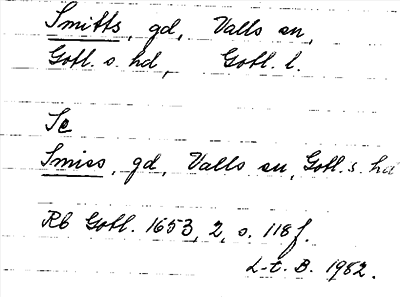 Smitts, gd, Valls sn,
Gotl. s. hd, Gotl. l.
Se
Smiss, gd, Valls sn, Gotl. s. hd
Rb Gotl. 1653, 2, s. 118 f.
L-t. B. 1982.